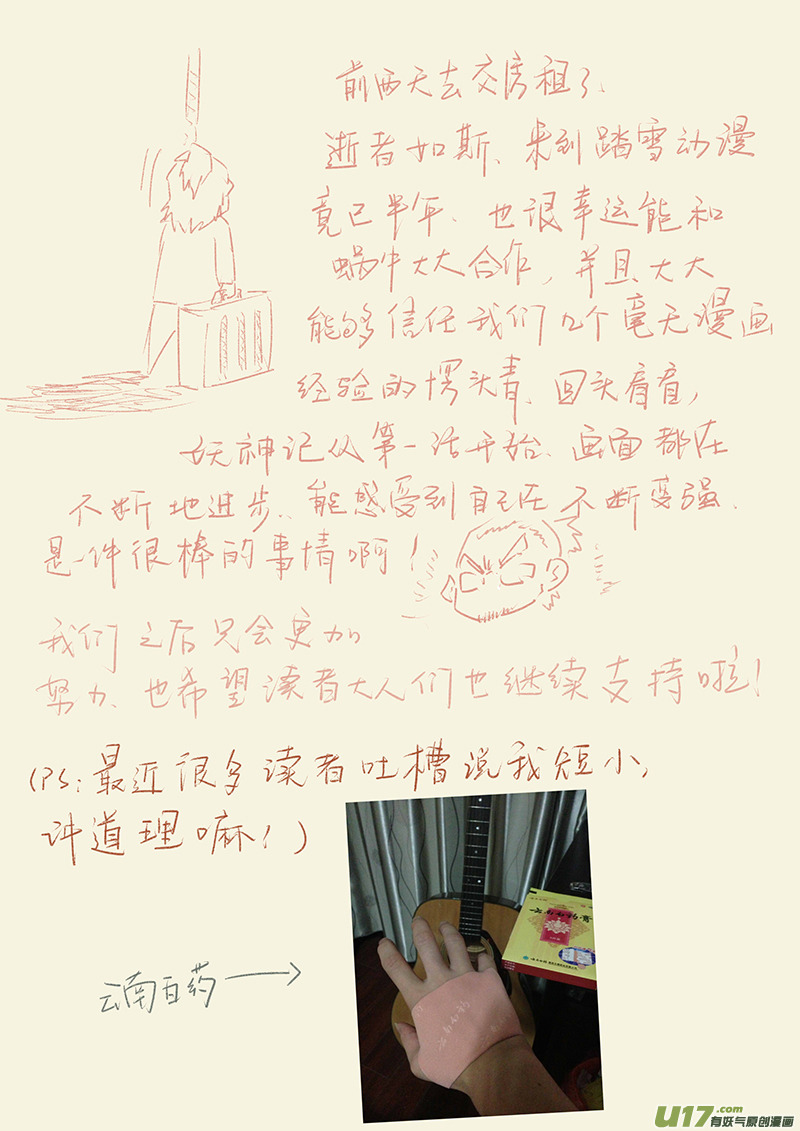 前两天去交房租了、
逝者如斯、来到踏雪动漫
竟已半年、也很幸运能和
蜗牛大大合作，并且大大
能够信任我们几个毫无漫画
经验的愣头青、回头看看，
妖神记从第一话开始、画面都在
不断地进步、能感受到自己在不断变强、
是一件很棒的事情啊！
我们之后只会更加
努力、也希望读者大人们也继续支持啦！
(PS:最近很多读者吐槽说我短小，
讲道理嘛！)
云南白药
云南白药膏
云南白药
U17.com
有妖气原创漫画